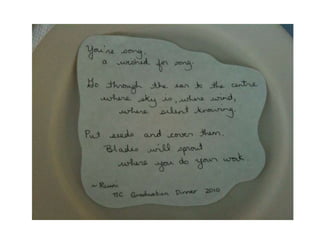 You're song.
a wished for song.
Go through the ear to the centre
where sky is, where wind,
where silent knowing.
Put seeds and cover them.
Blades will sprout
where you do your work.
~ Rumi
TJC Graduation Dinner 2010